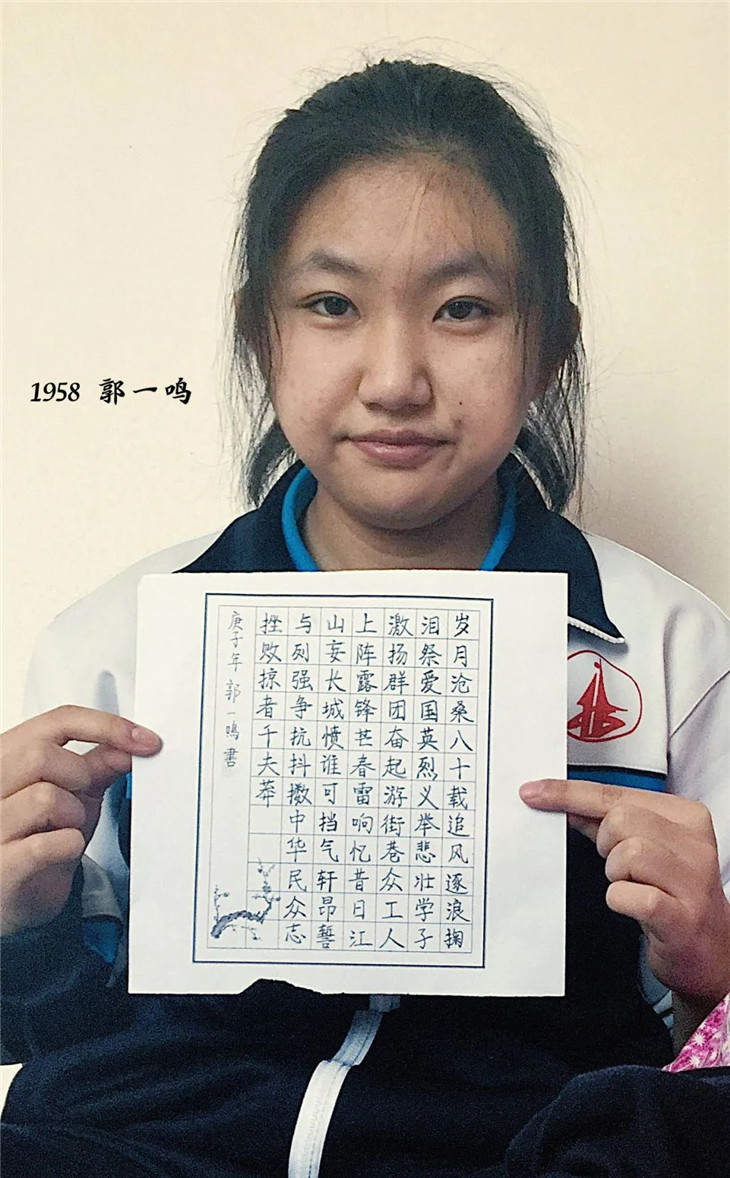 1958 郭一鸣
岁月沧桑八十载追风逐浪掬
泪祭爱国英烈义举悲壮学子
激扬群团奋起游街巷众工人
上阵露锋芒春雷响忆昔日江
山妄长城愤谁可挡气轩昂誓
与列强争抗抖擞中华民众志
挫败掠者千夫莽
庚子年郭一鸣書